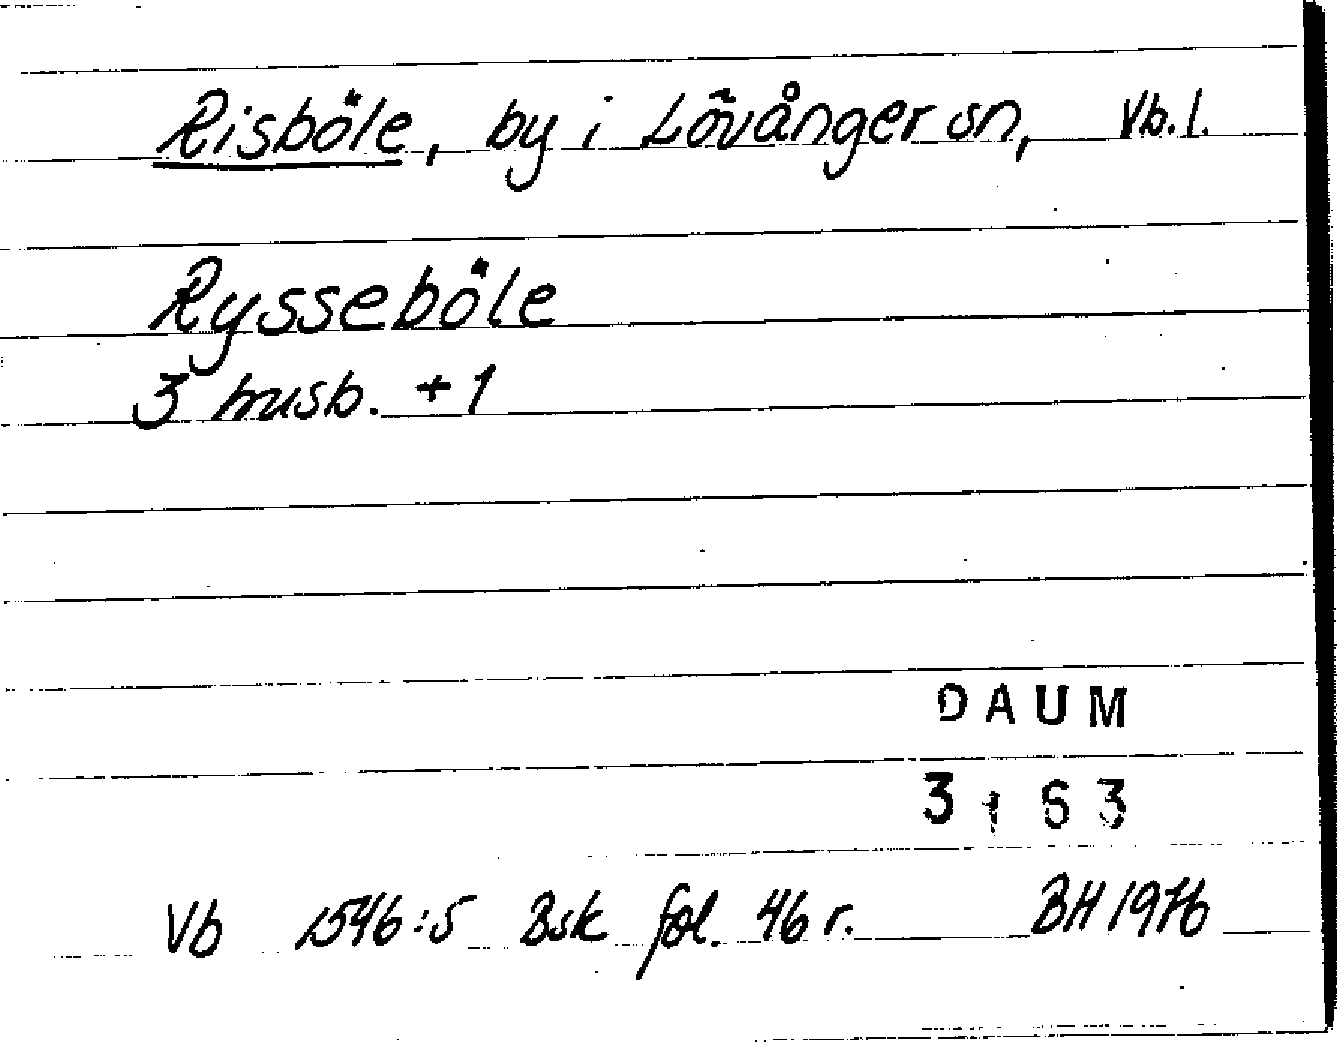 Risböle, by i Lövånger sn, Vb.l.
Rysseböle
3 husb. + 1
DAUM
3163
Vb 1546:5 Bsk fol. 46 r. BH 1976